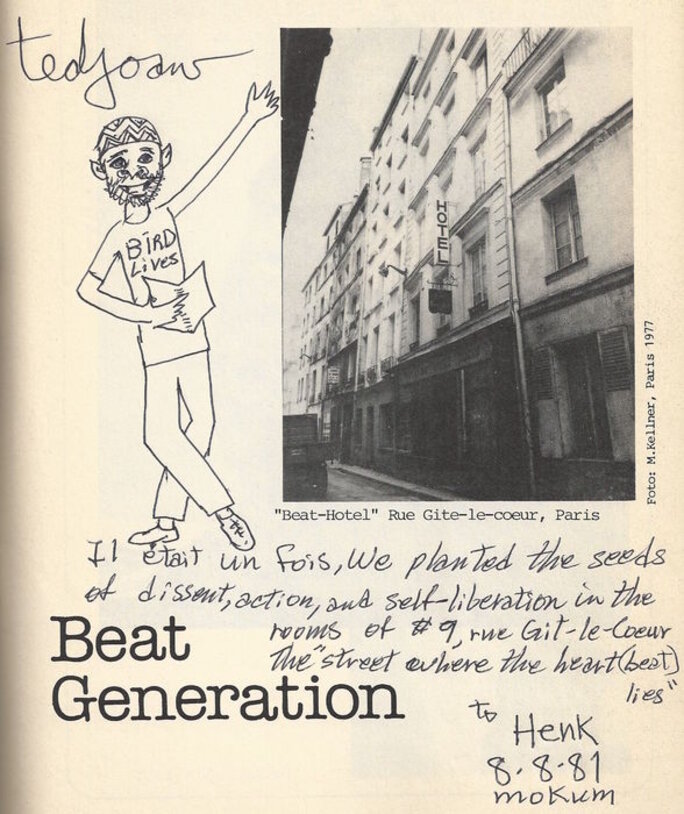 tedjoans
BIRD
Lives
HOTEL
Foto: M.Kellner, Paris 1977
"Beat-Hotel" Rue Gite-le-coeur, Paris
Il était un fois, We planted the seeds
of dissent, action, and self-liberation in the
rooms of #9, rue Git-le-Coeur
The "street where the heart (beat)
lies"
Beat
Generation
to
Henk
8.8.81
mokum